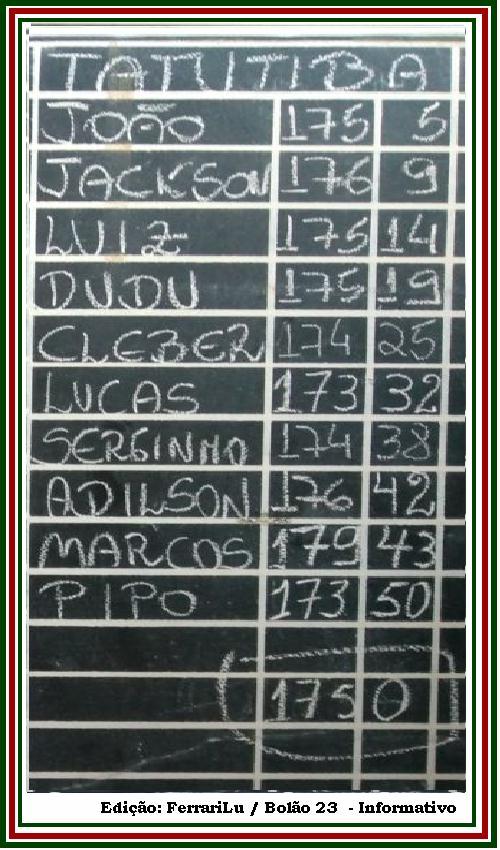 TATUTIBA
JOÃO 175 5
JACKSON 176 9
LUIZ 175 14
DUDU 175 19
CLEBER 174 25
LUCAS 173 32
SERGINHO 174 38
ADILSON 176 42
MARCOS 179 43
PIPO 173 50
1750
Edição: FerrariLu / Bolão 23 - Informativo